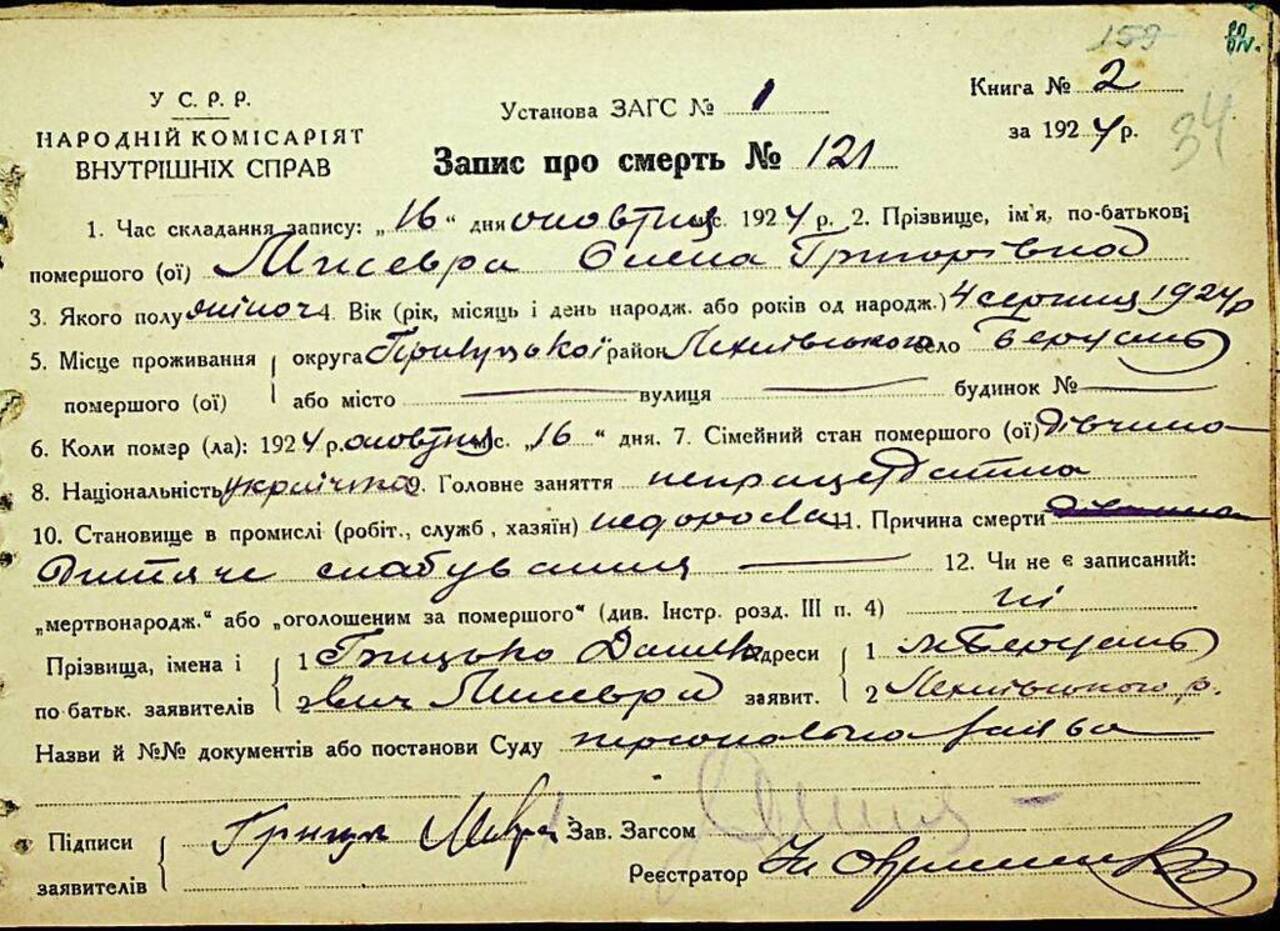 159
У С. Р. Р.
НАРОДНІЙ КОМІСАРІЯТ
ВНУТРІШНІХ СПРАВ
Установа ЗАГС № 1
Книга № 2
за 1924 р.
34
Запис про смерть № 121
1. Час складання запису: „16“ дня жовтня міс. 1924 р. 2. Прізвище, ім'я, по-батькові
помершого (ої) Олена Григорівна
3. Якого полу жіноч 4. Вік (рік, місяць і день народж. або років од народж.) 4 серпня 1924 р
5. Місце проживання округа Прилуцької район село
помершого (ої) або місто вулиця будинок №
6. Коли помэр (ла): 1924 р. жовтня міс. „16“ дня. 7. Сімейний стан помершого (ої) дівчина
8. Національність українка 9. Головне заняття дитина
10. Становище в промислі (робіт., служб, хазяїн) недоросла 11. Причина смерти
Дитяче слабування 12. Чи не є записаний:
„мертвонародж.“ або „оголошеним за помершого“ (див. Інстр. розд. III п. 4) ні
Прізвища, імена і 1 Грицько адреси 1
по батьк. заявителів 2 заявит. 2
Назви й №№ документів або постанови Суду персональна заява
Підписи Грицко Зав. Загсом
заявителів Реєстратор